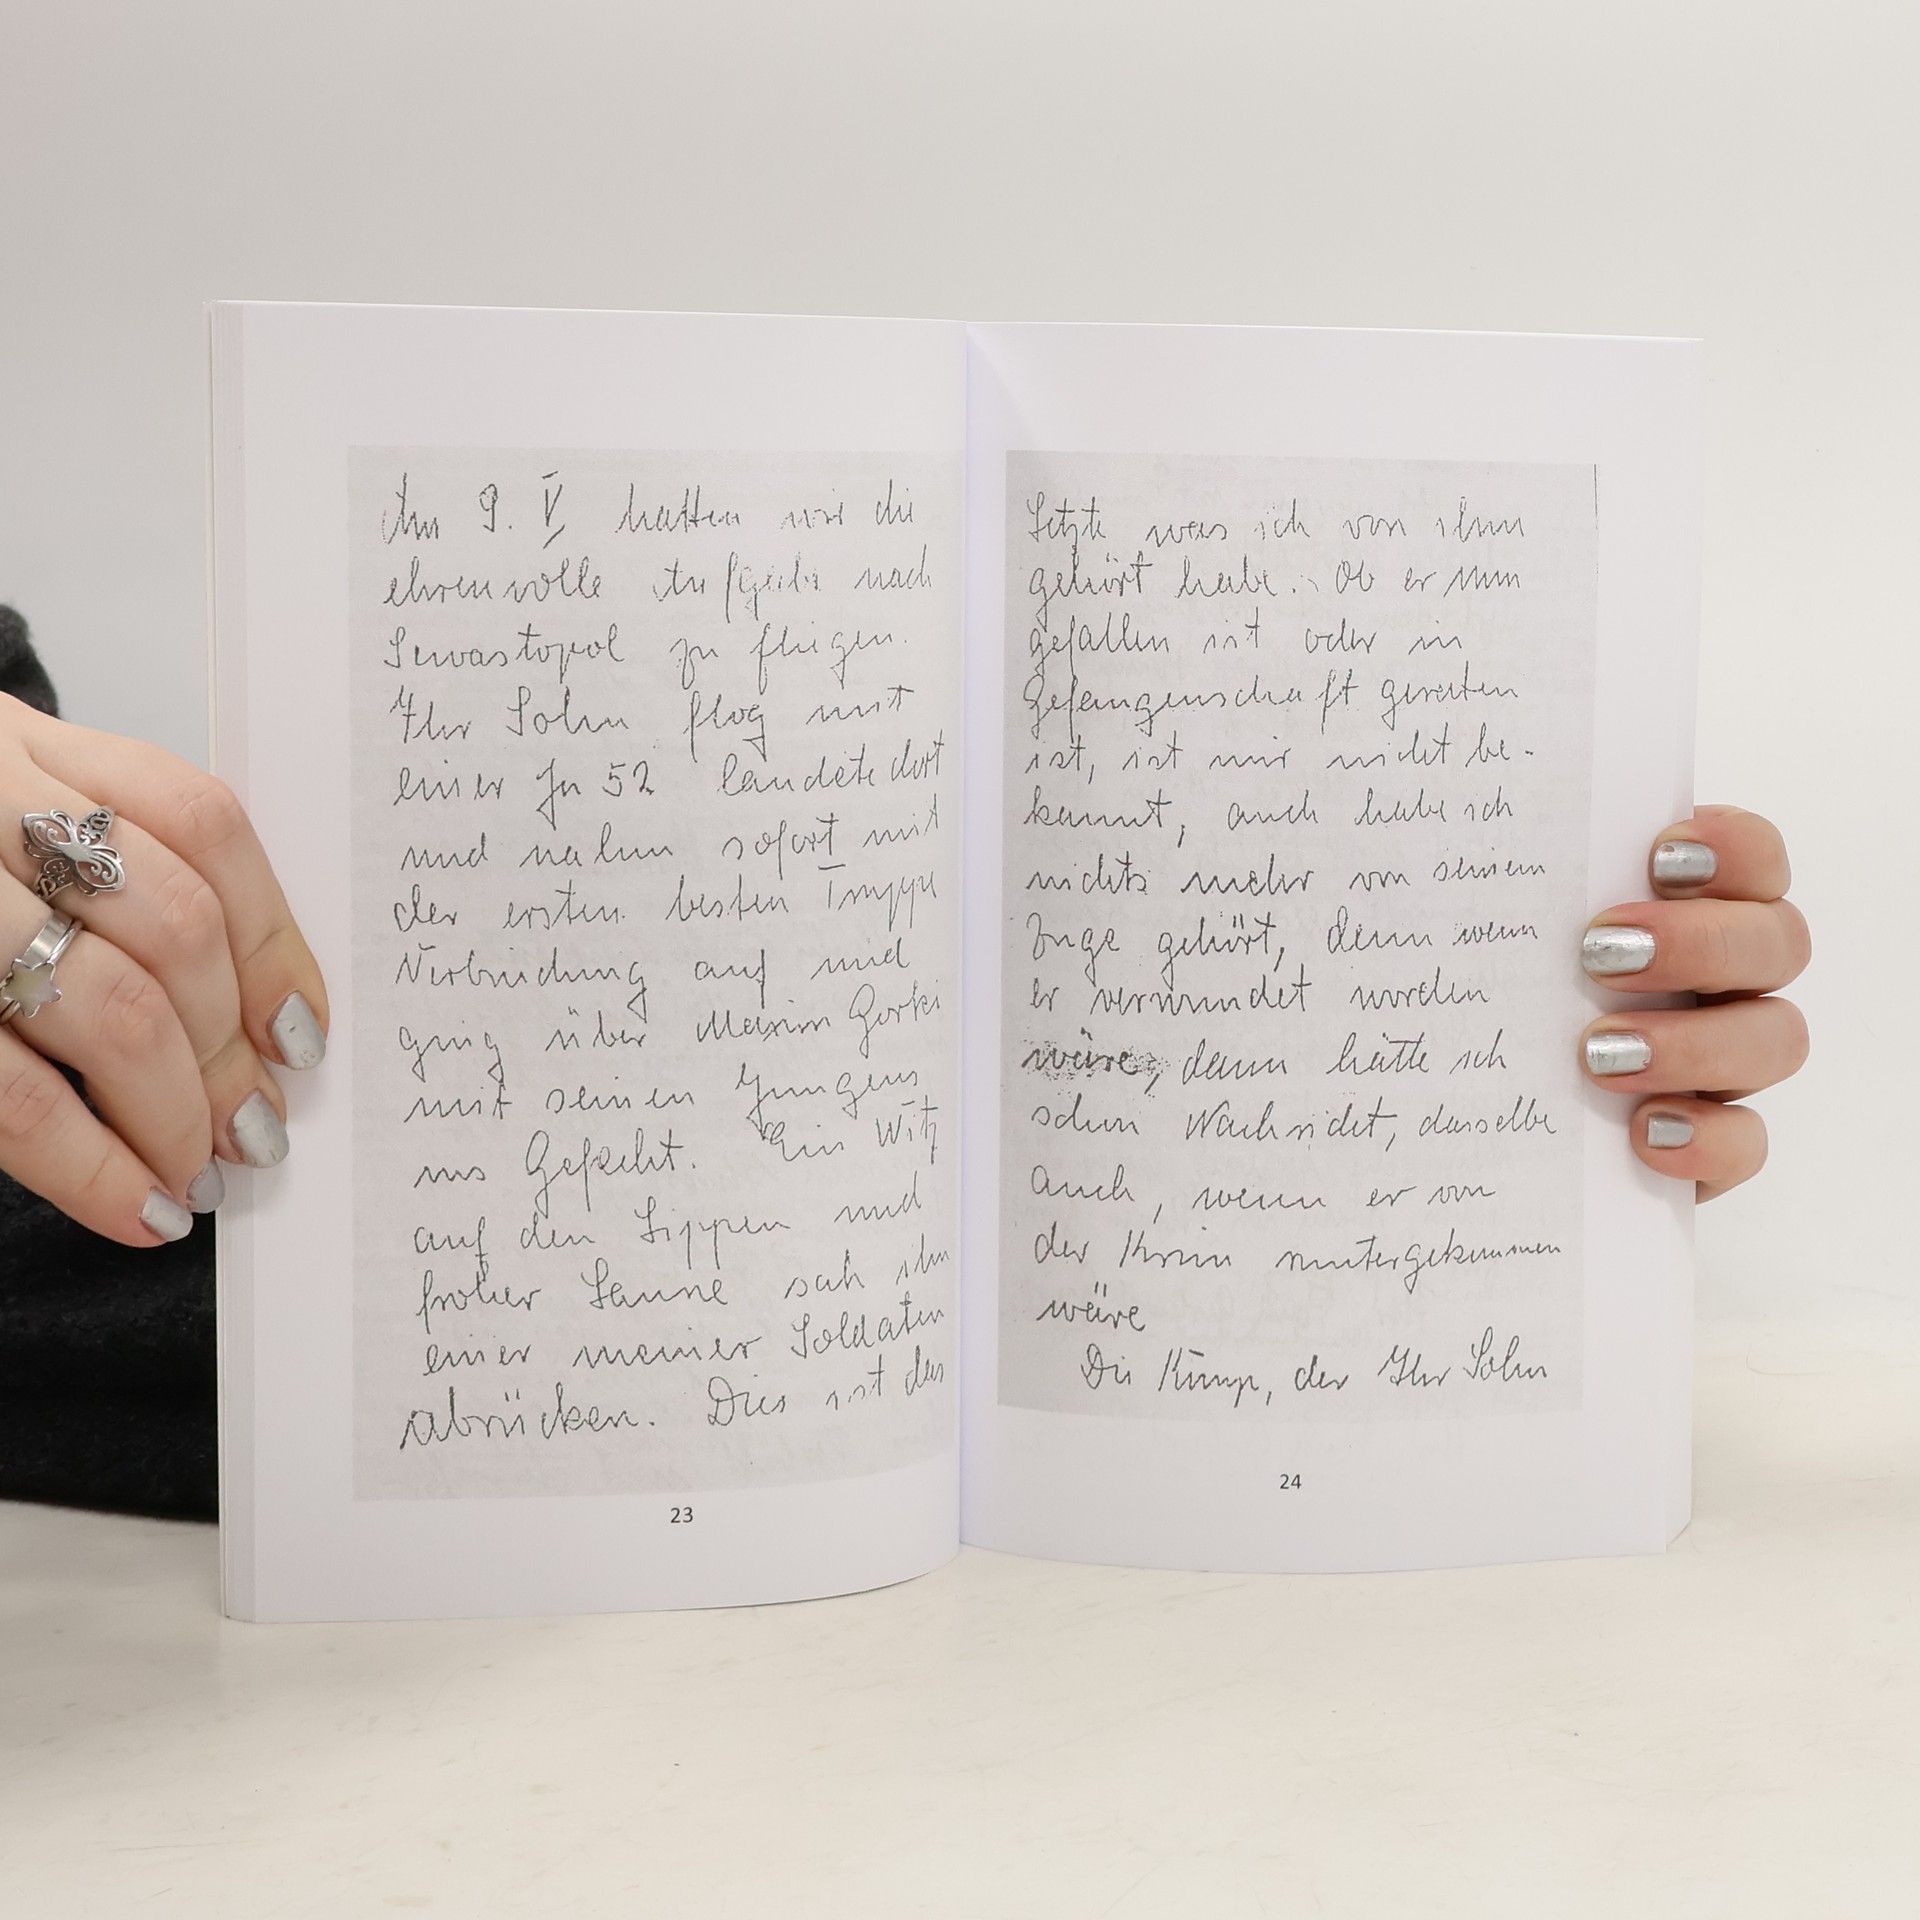 Am 9. V. hatten wir die
ehrenvolle Aufgabe nach
Sewastopol zu fliegen.
Ihr Sohn flog mit
einer Ju 52 landete dort
und nahm sofort mit
der ersten besten Truppe
Verbindung auf und
ging über Maxim Gorki
mit seinen Jungens
ins Gefecht. Ein Witz
auf den Lippen und
froher Laune sah ihn
einer meiner Soldaten
abrücken. Dies ist das
23
Letzte was ich von ihm
gehört habe. Ob er nun
gefallen ist oder in
Gefangenschaft geraten
ist, ist mir nicht be-
kannt, auch habe ich
nichts mehr von seinem
Zuge gehört, denn wenn
er verwundet worden
wäre, dann hätte ich
schon Nachricht, dasselbe
auch, wenn er von
der Krim runtergekommen
wäre
Die Komp, der Ihr Sohn
24